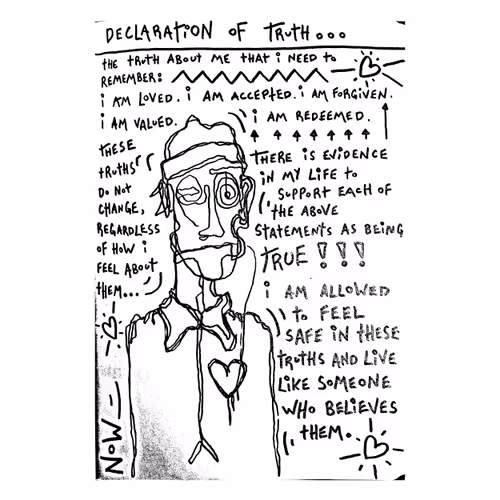 DECLARATION OF TRUTH...
THE TRUTH ABOUT ME THAT i NEED to
REMEMBER:
i AM LOVED. i AM ACCEPTED. i AM FORGIVEN.
i AM VALUED.
i AM REDEEMED.
THESE
TRUTHS
DO NOT
CHANGE,
REGARDLESS
OF HOW i
FEEL ABOUT
THEM...
THERE IS EVIDENCE
IN MY LIFE to
SUPPORT EACH OF
THE ABOVE
STATEMENTS AS BEING
TRUE!!!
i AM ALLOWED
to FEEL
SAFE IN THESE
TRUTHS AND LIVE
LIKE SOMEONE
WHO BELIEVES
THEM.
NOW